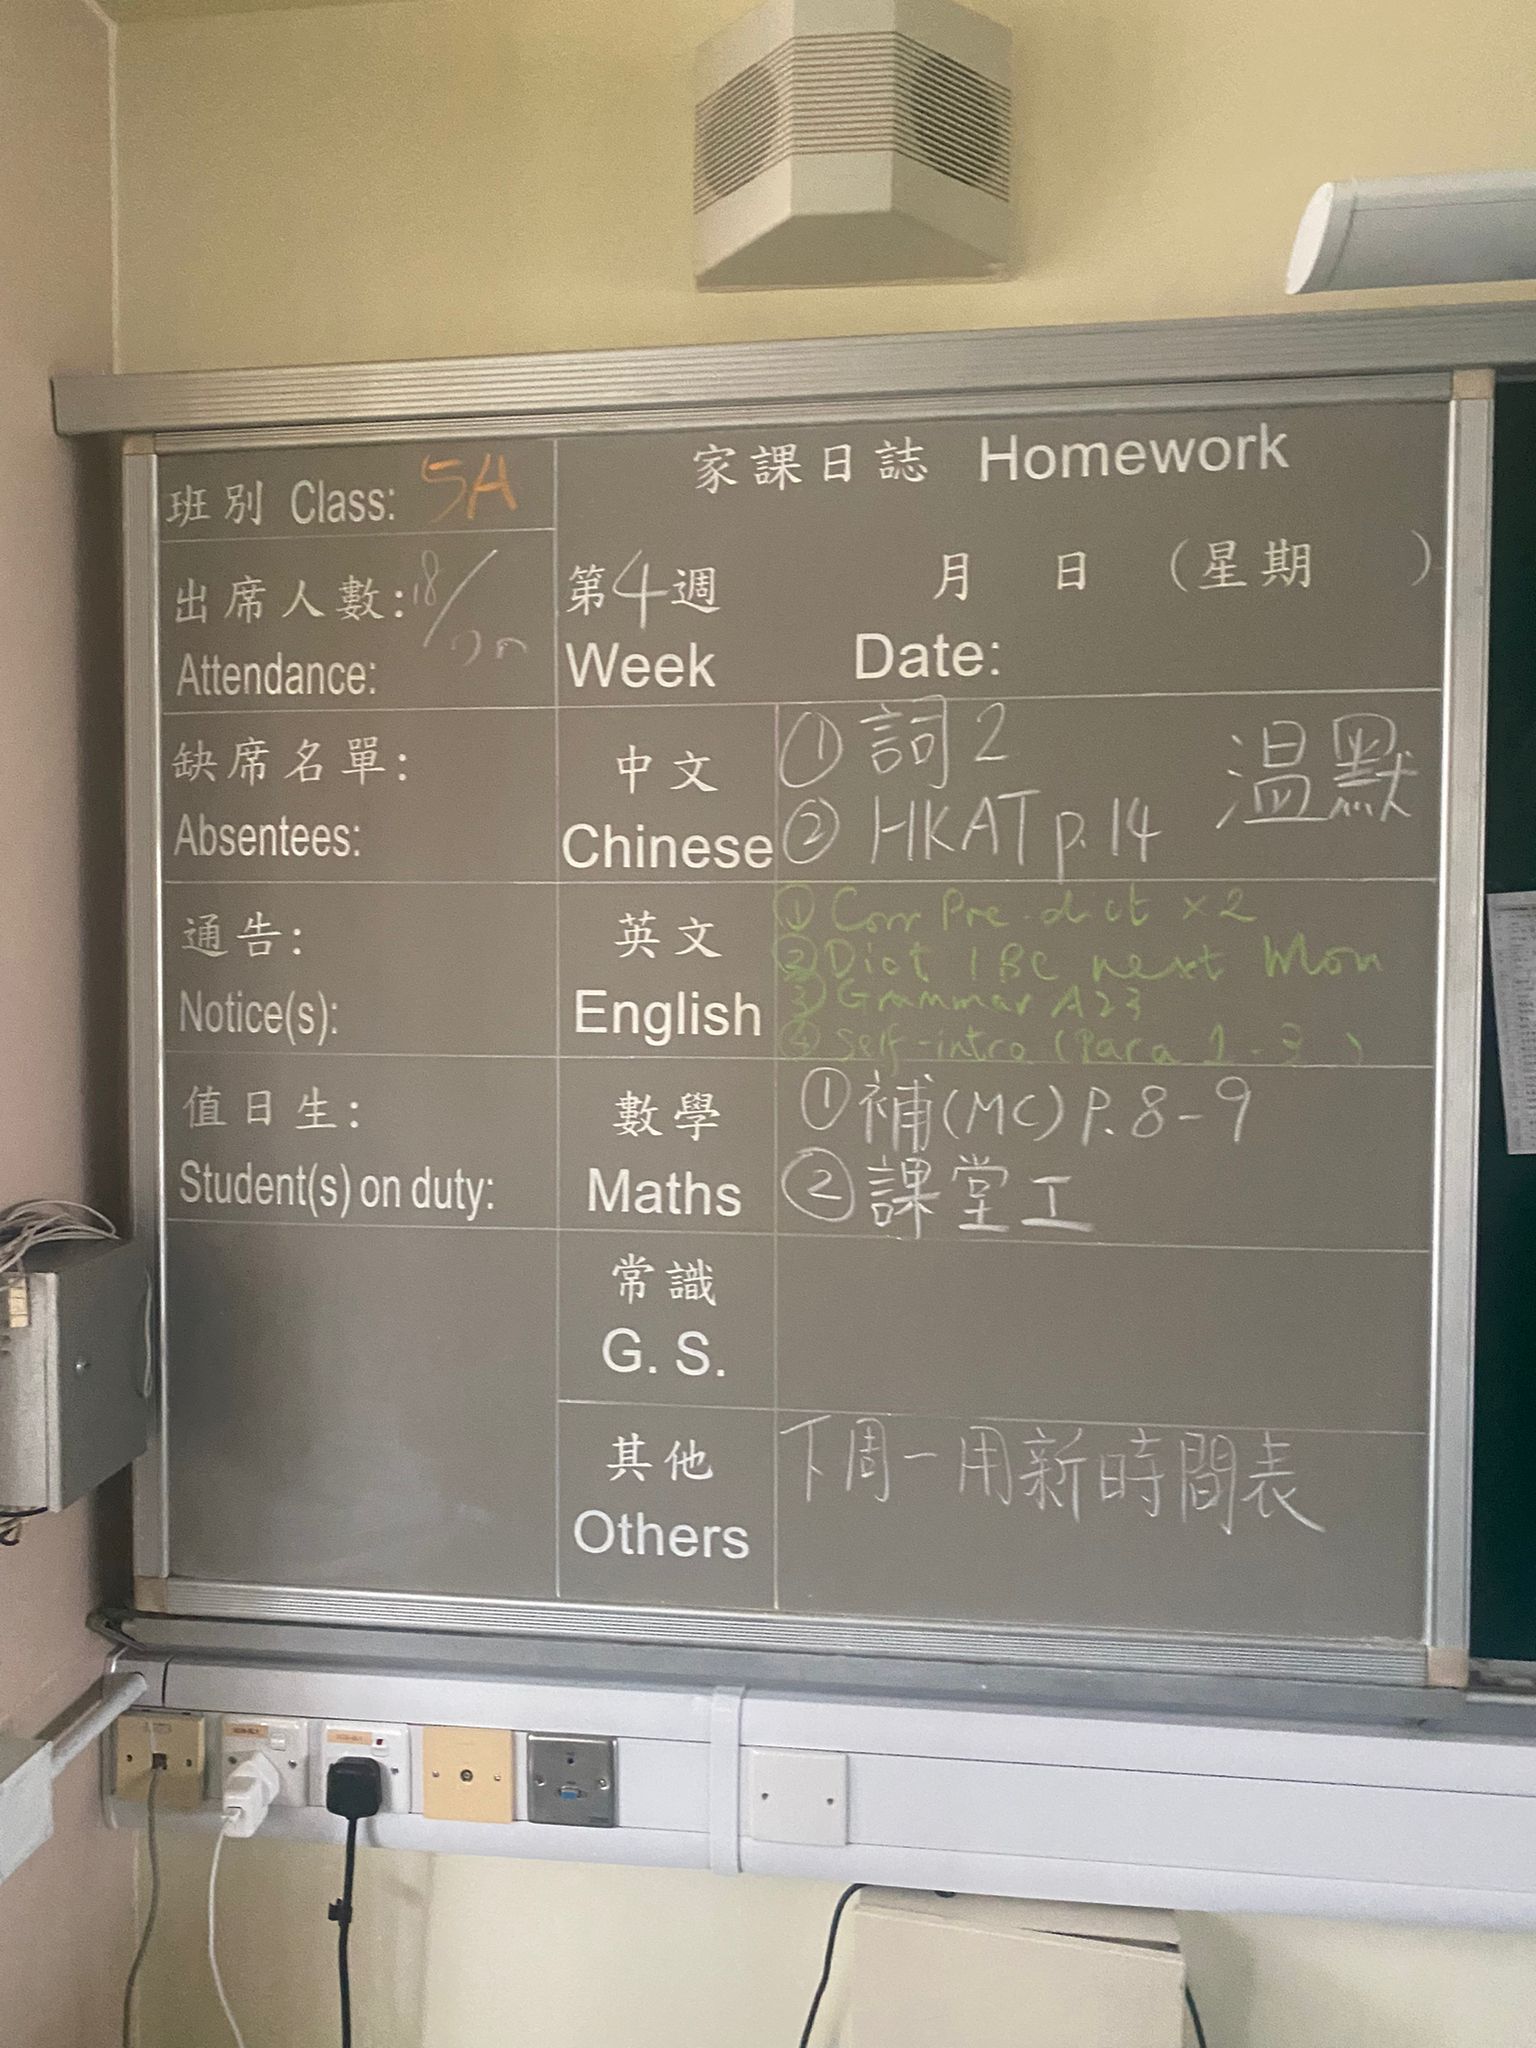 家課日誌 Homework
班別 Class: 5A
出席人數: 18/
Attendance:
第4週
Week
月 日 (星期 )
Date:
缺席名單:
Absentees:
中文
Chinese
① 詞2
② HKAT p.14
溫默
通告:
Notice(s):
英文
English
① Corr Pre-dict x2
② Dict 1BC next Mon
③ Grammar A23
④ Self-intro (Para 1-3)
值日生:
Student(s) on duty:
數學
Maths
① 補(MC) P.8-9
② 課堂工
常識
G. S.
其他
Others
下周一用新時間表